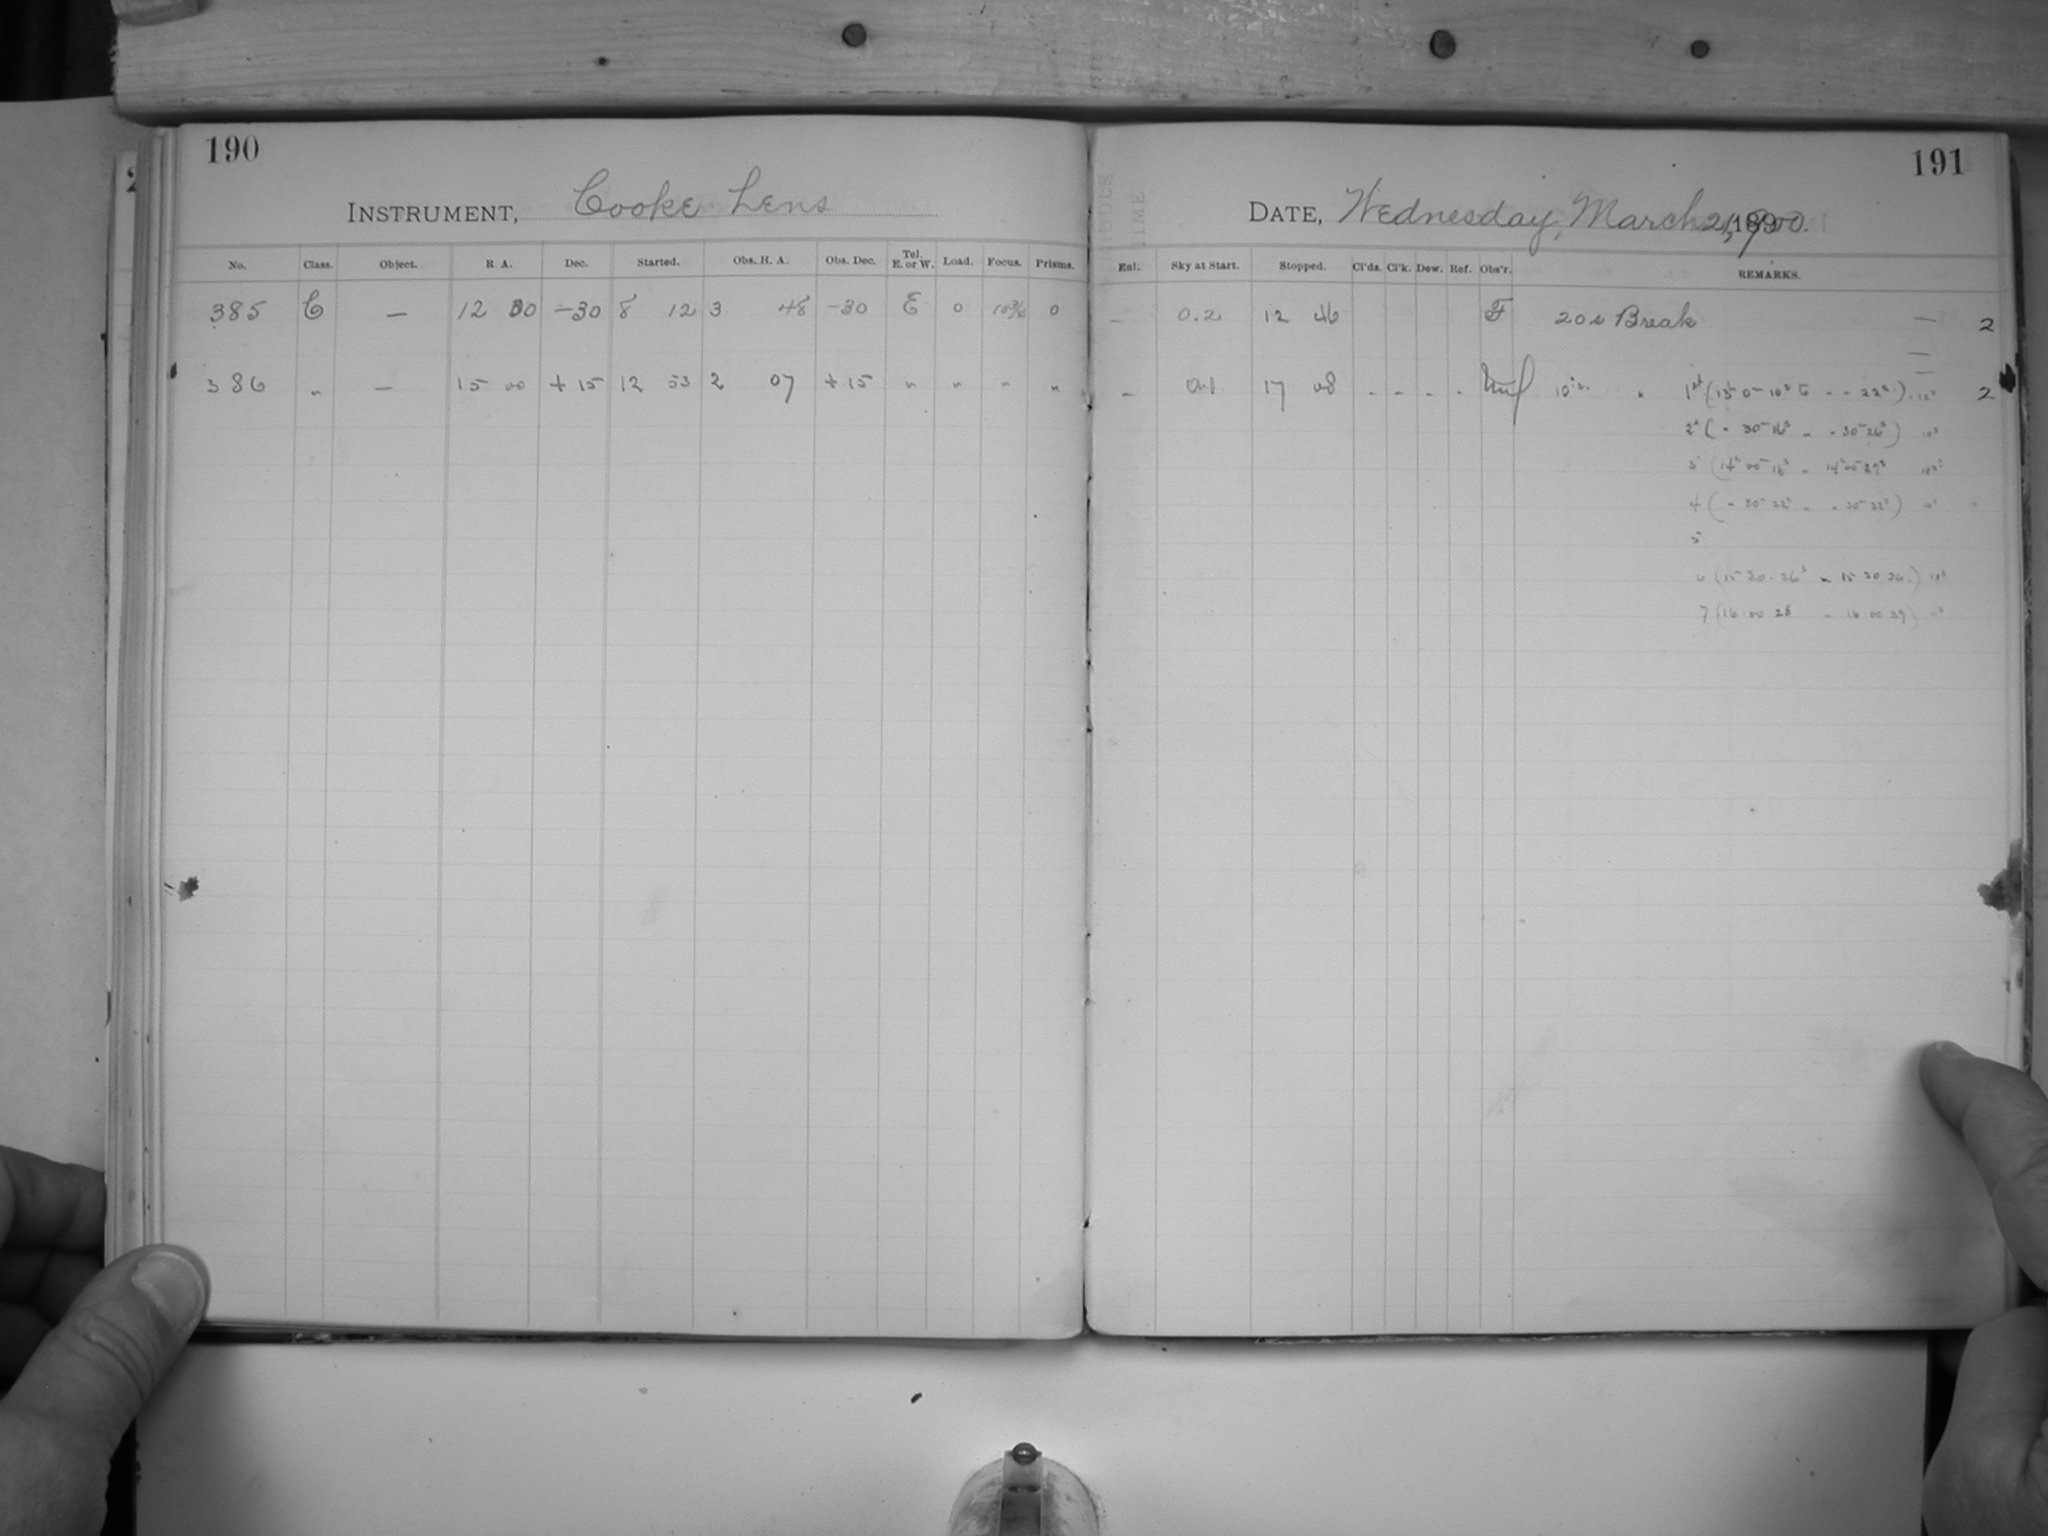 190
INSTRUMENT, Cooke Lens
No. Class. Object. R. A. Dec. Started. Obs. H. A. Obs. Dec. Tel. E. or W. Load. Focus. Prisms.
385 C — 12 00 −30 8 12 3 48 −30 E 0 0
386 " — 15 00 + 15 12 53 2 07 + 15 " " " "
191
DATE, Wednesday, March 21, 1900.
Enl. Sky at Start. Stopped. Cl'ds. Cl'k. Dew. Ref. Obs'r. REMARKS.
— 0.2 12 46 F 20s Break — 2
—
- 17 08 - - - - 2
2d (" 30m 16s " " 30m 26s) 10s
3
4 (" 30m 22s " " 30m 32s)
5
6 (15 30 26s " 15 30 36) 10s
7 (16 00 28 - 16 00 39)